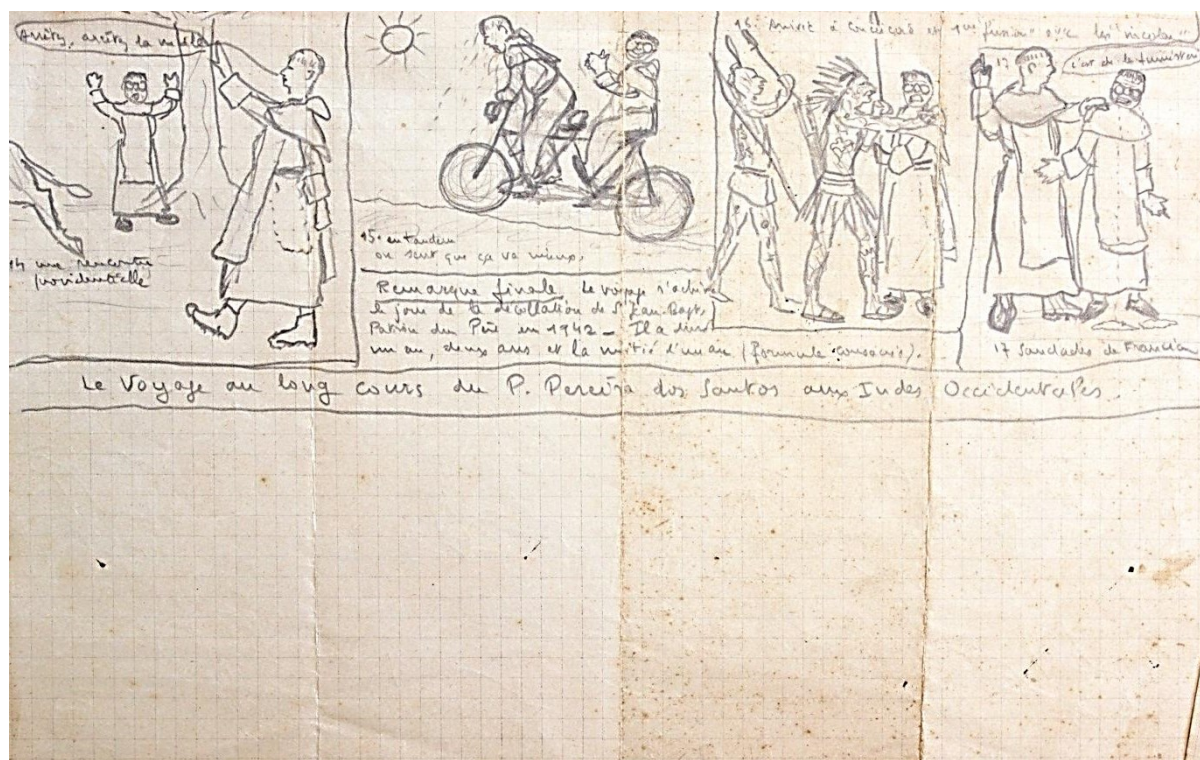 Arrêtez, arrêtez la
14 une rencontre
providentielle
15. en tandem
on sent que ça va mieux.
Remarque finale Le voyage s'achève
le jour de la décollation de St Jean-Bapt.
Patron du Père en 1942 - Il a duré
un an, deux ans et la moitié d'un an (formule consacrée).
16. Arrivée à et 1ère fusion avec les
17
c'est de la
17 Saudades de
Le Voyage au long cours du P. Pereira dos Santos aux Indes Occidentales.